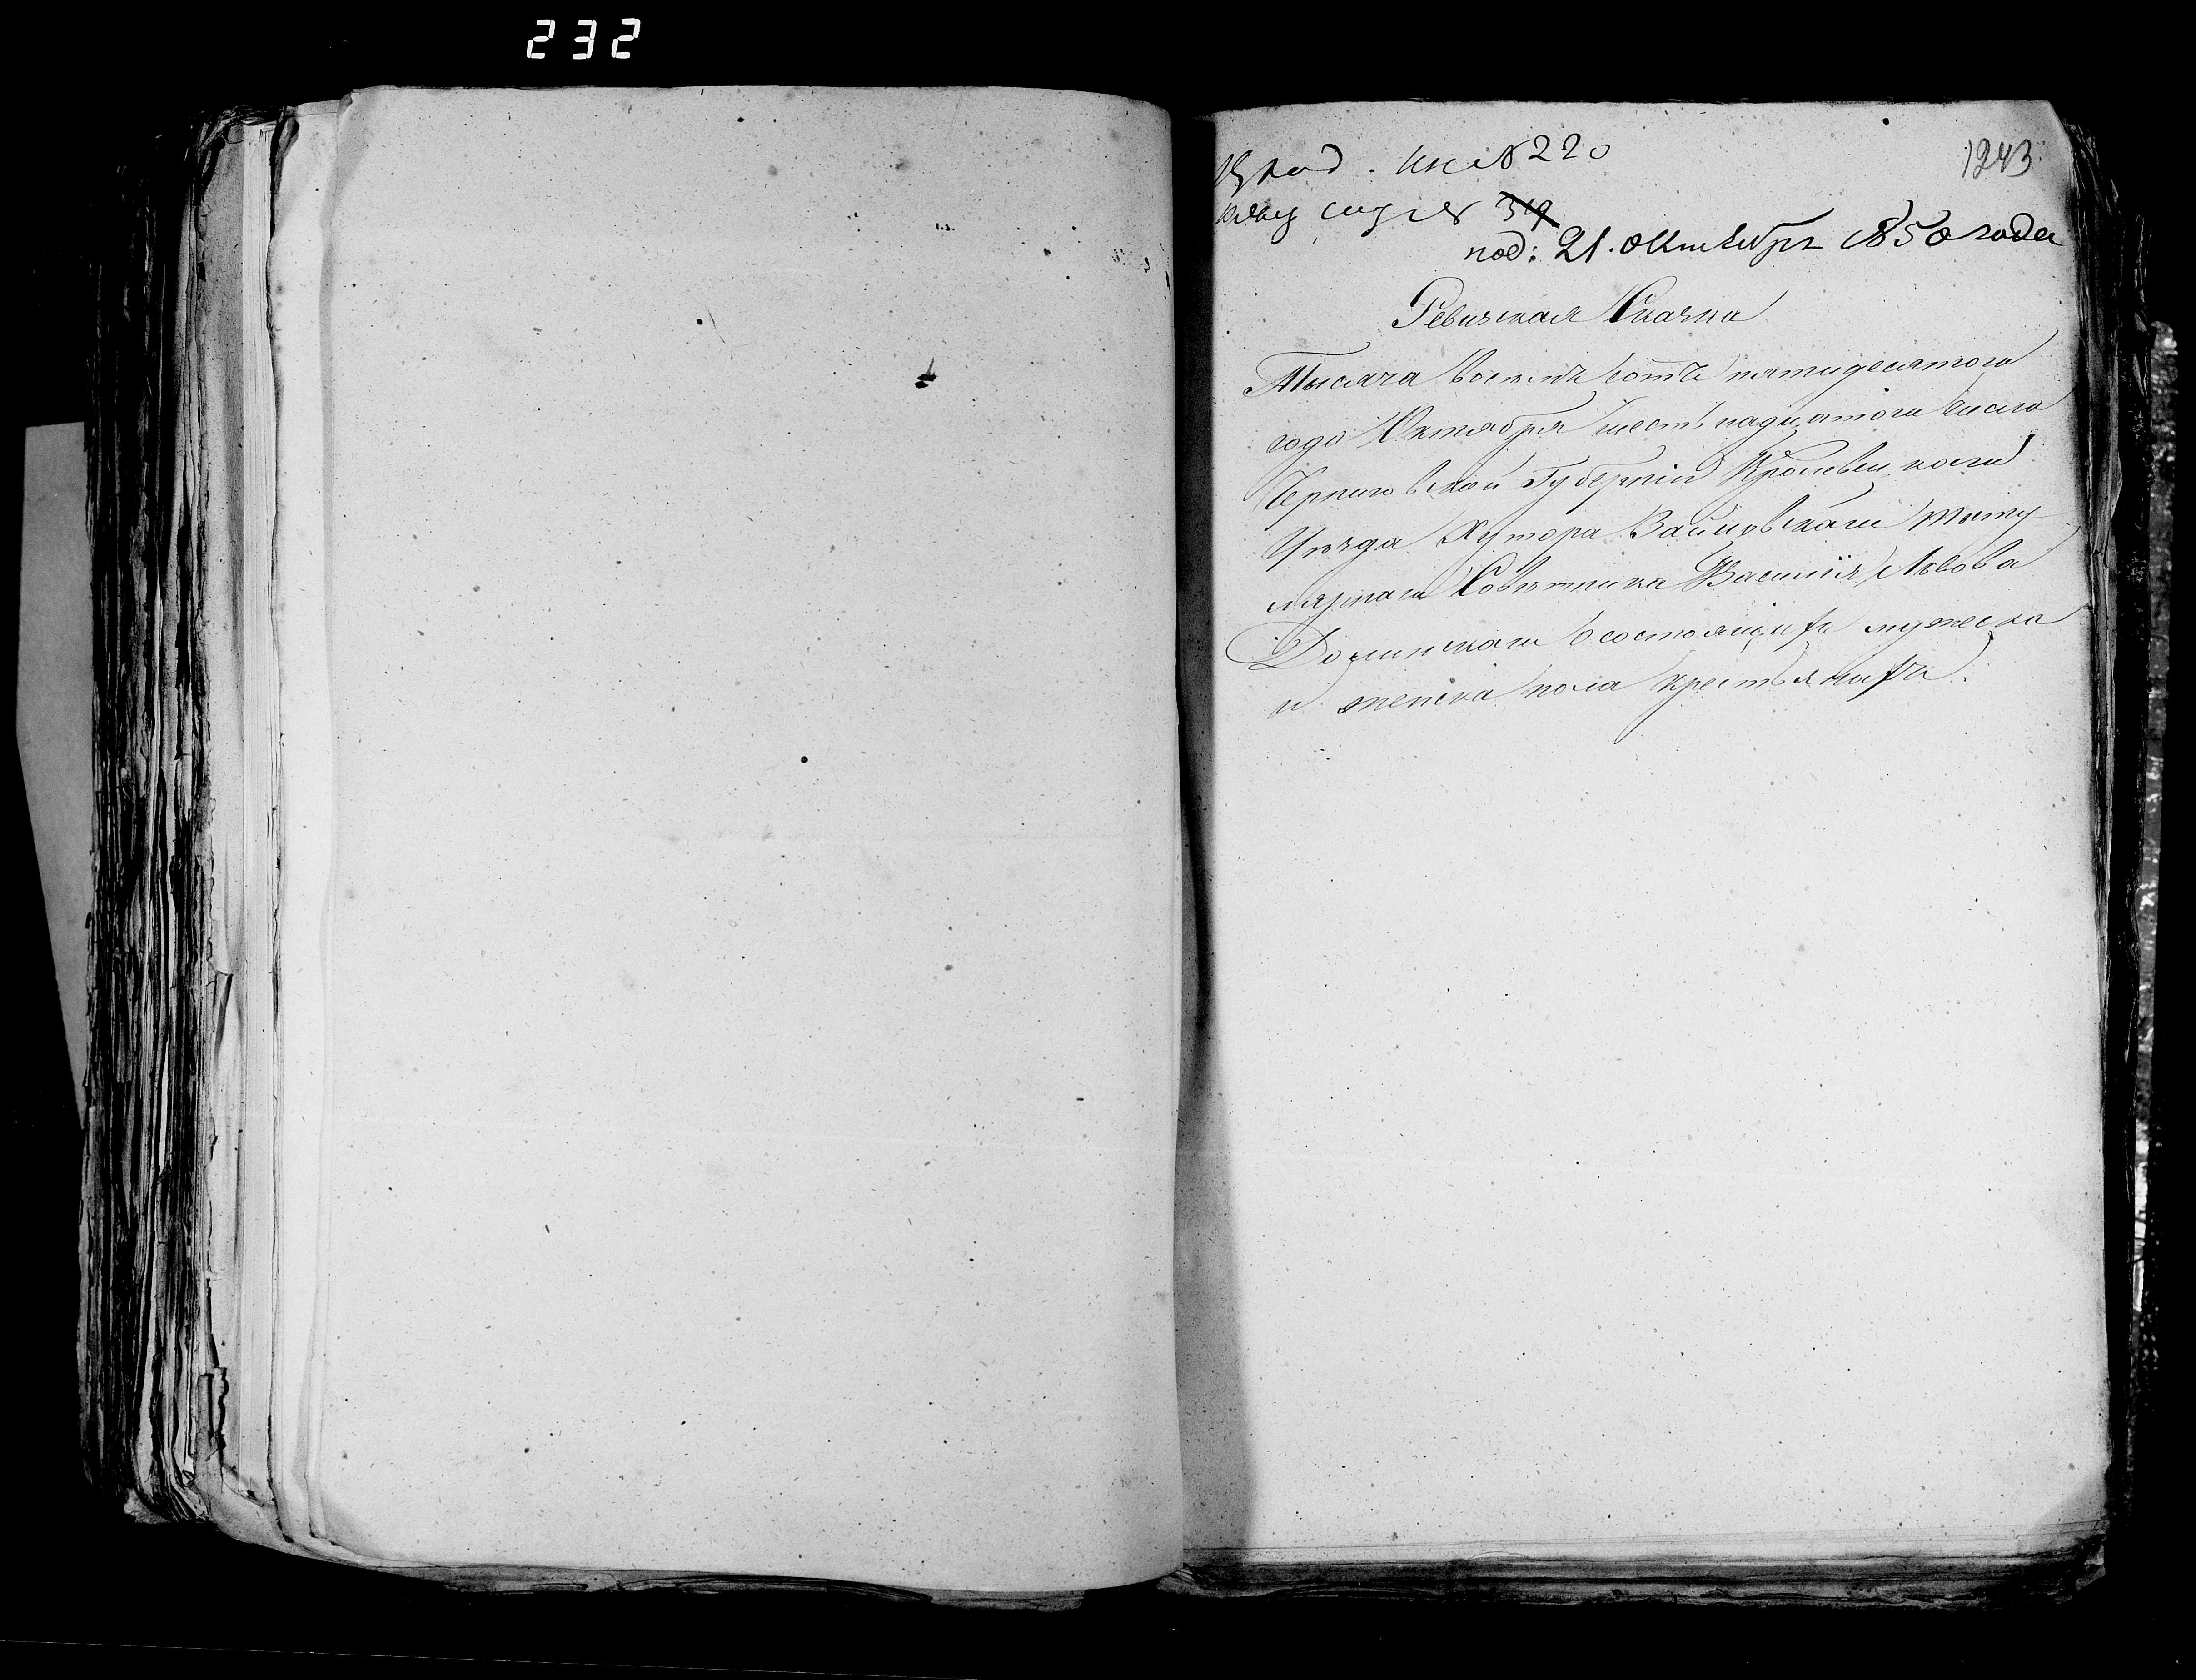 232
1243
№ 220
№ 39
под: 21. Октября 1850 года
Ревизская Сказка
Тысяча восемь сотъ пятидесятого
года Октября шестьнадцатого числа
Черниговской Губерніи Кролевецкаго
Уѣзда Хутора Титу
лярнаго Совѣтника Василія Львова
о состоящихъ мужеска
и женска пола крестьянахъ.